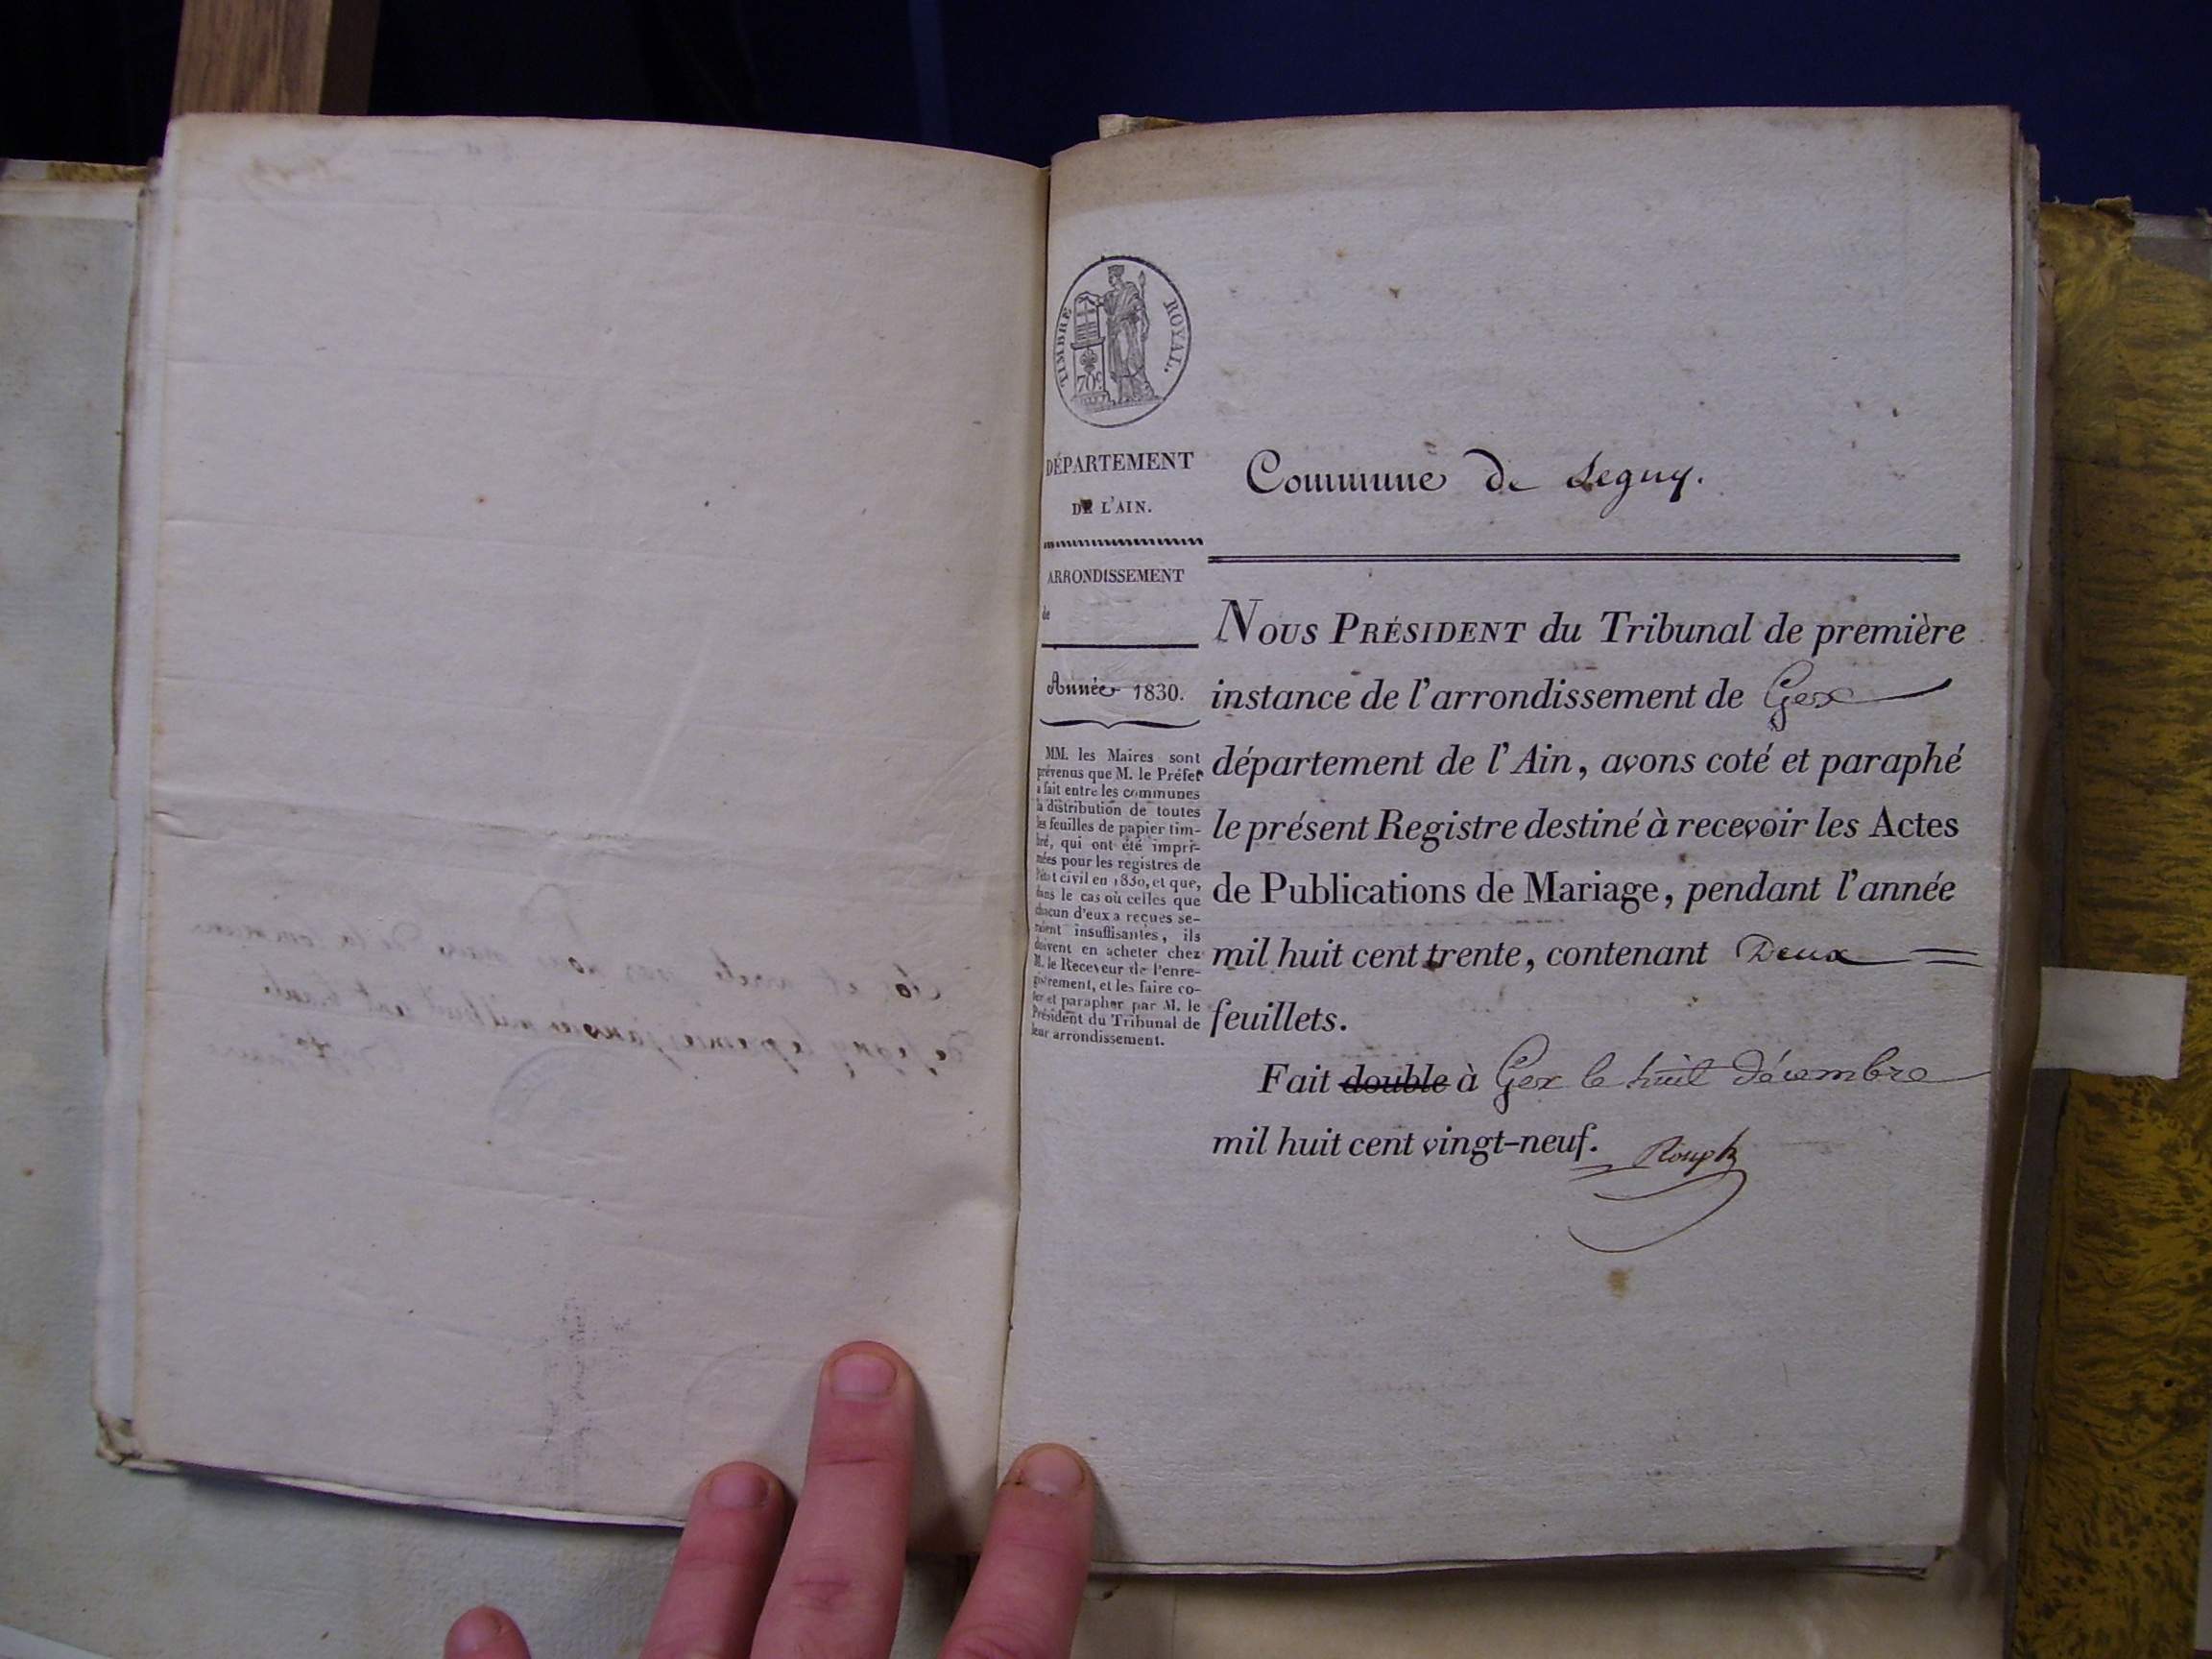 TIMBRE ROYAL.
70c
DÉPARTEMENT
DE L'AIN.
ARRONDISSEMENT
de
Année 1830.
MM. les Maires sont
prévenus que M. le Préfet
a fait entre les communes
la distribution de toutes
les feuilles de papier tim-
bré, qui ont été impri-
mées pour les registres de
l'état civil en 1830, et que,
dans le cas où celles que
chacun d'eux a reçues se-
raient insuffisantes, ils
doivent en acheter chez
M. le Receveur de l'enre-
gistrement, et les faire co-
ter et parapher par M. le
Président du Tribunal de
leur arrondissement.
Commune de Segny.
NOUS PRÉSIDENT du Tribunal de première
instance de l'arrondissement de Gex
département de l'Ain, avons coté et paraphé
le présent Registre destiné à recevoir les Actes
de Publications de Mariage, pendant l'année
mil huit cent trente, contenant Deux
feuillets.
Fait double à Gex le huit décembre
mil huit cent vingt-neuf.